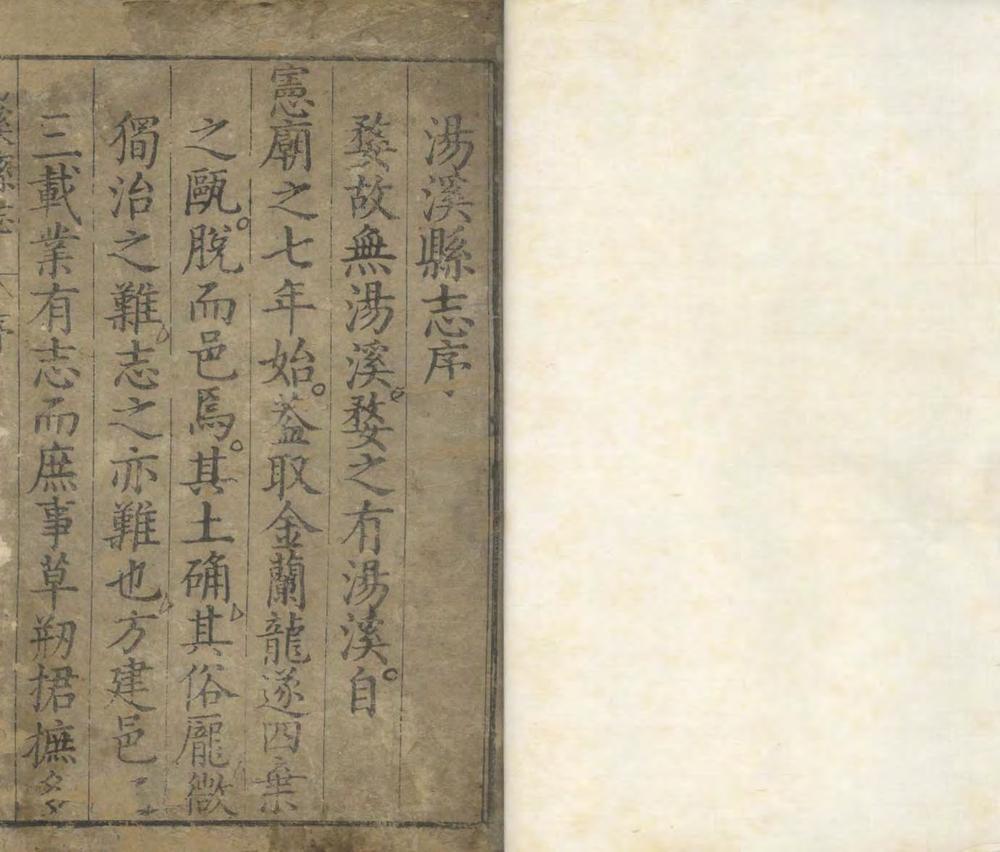 湯溪縣志序
婺故無湯溪婺之有湯溪自
憲廟之七年始葢取金蘭龍遂四棄
之甌脫而邑焉其土确其俗龎微
獨治之難志之亦難也方建邑
三載業有志而庶事草刱捃摭多
溪縣志 序